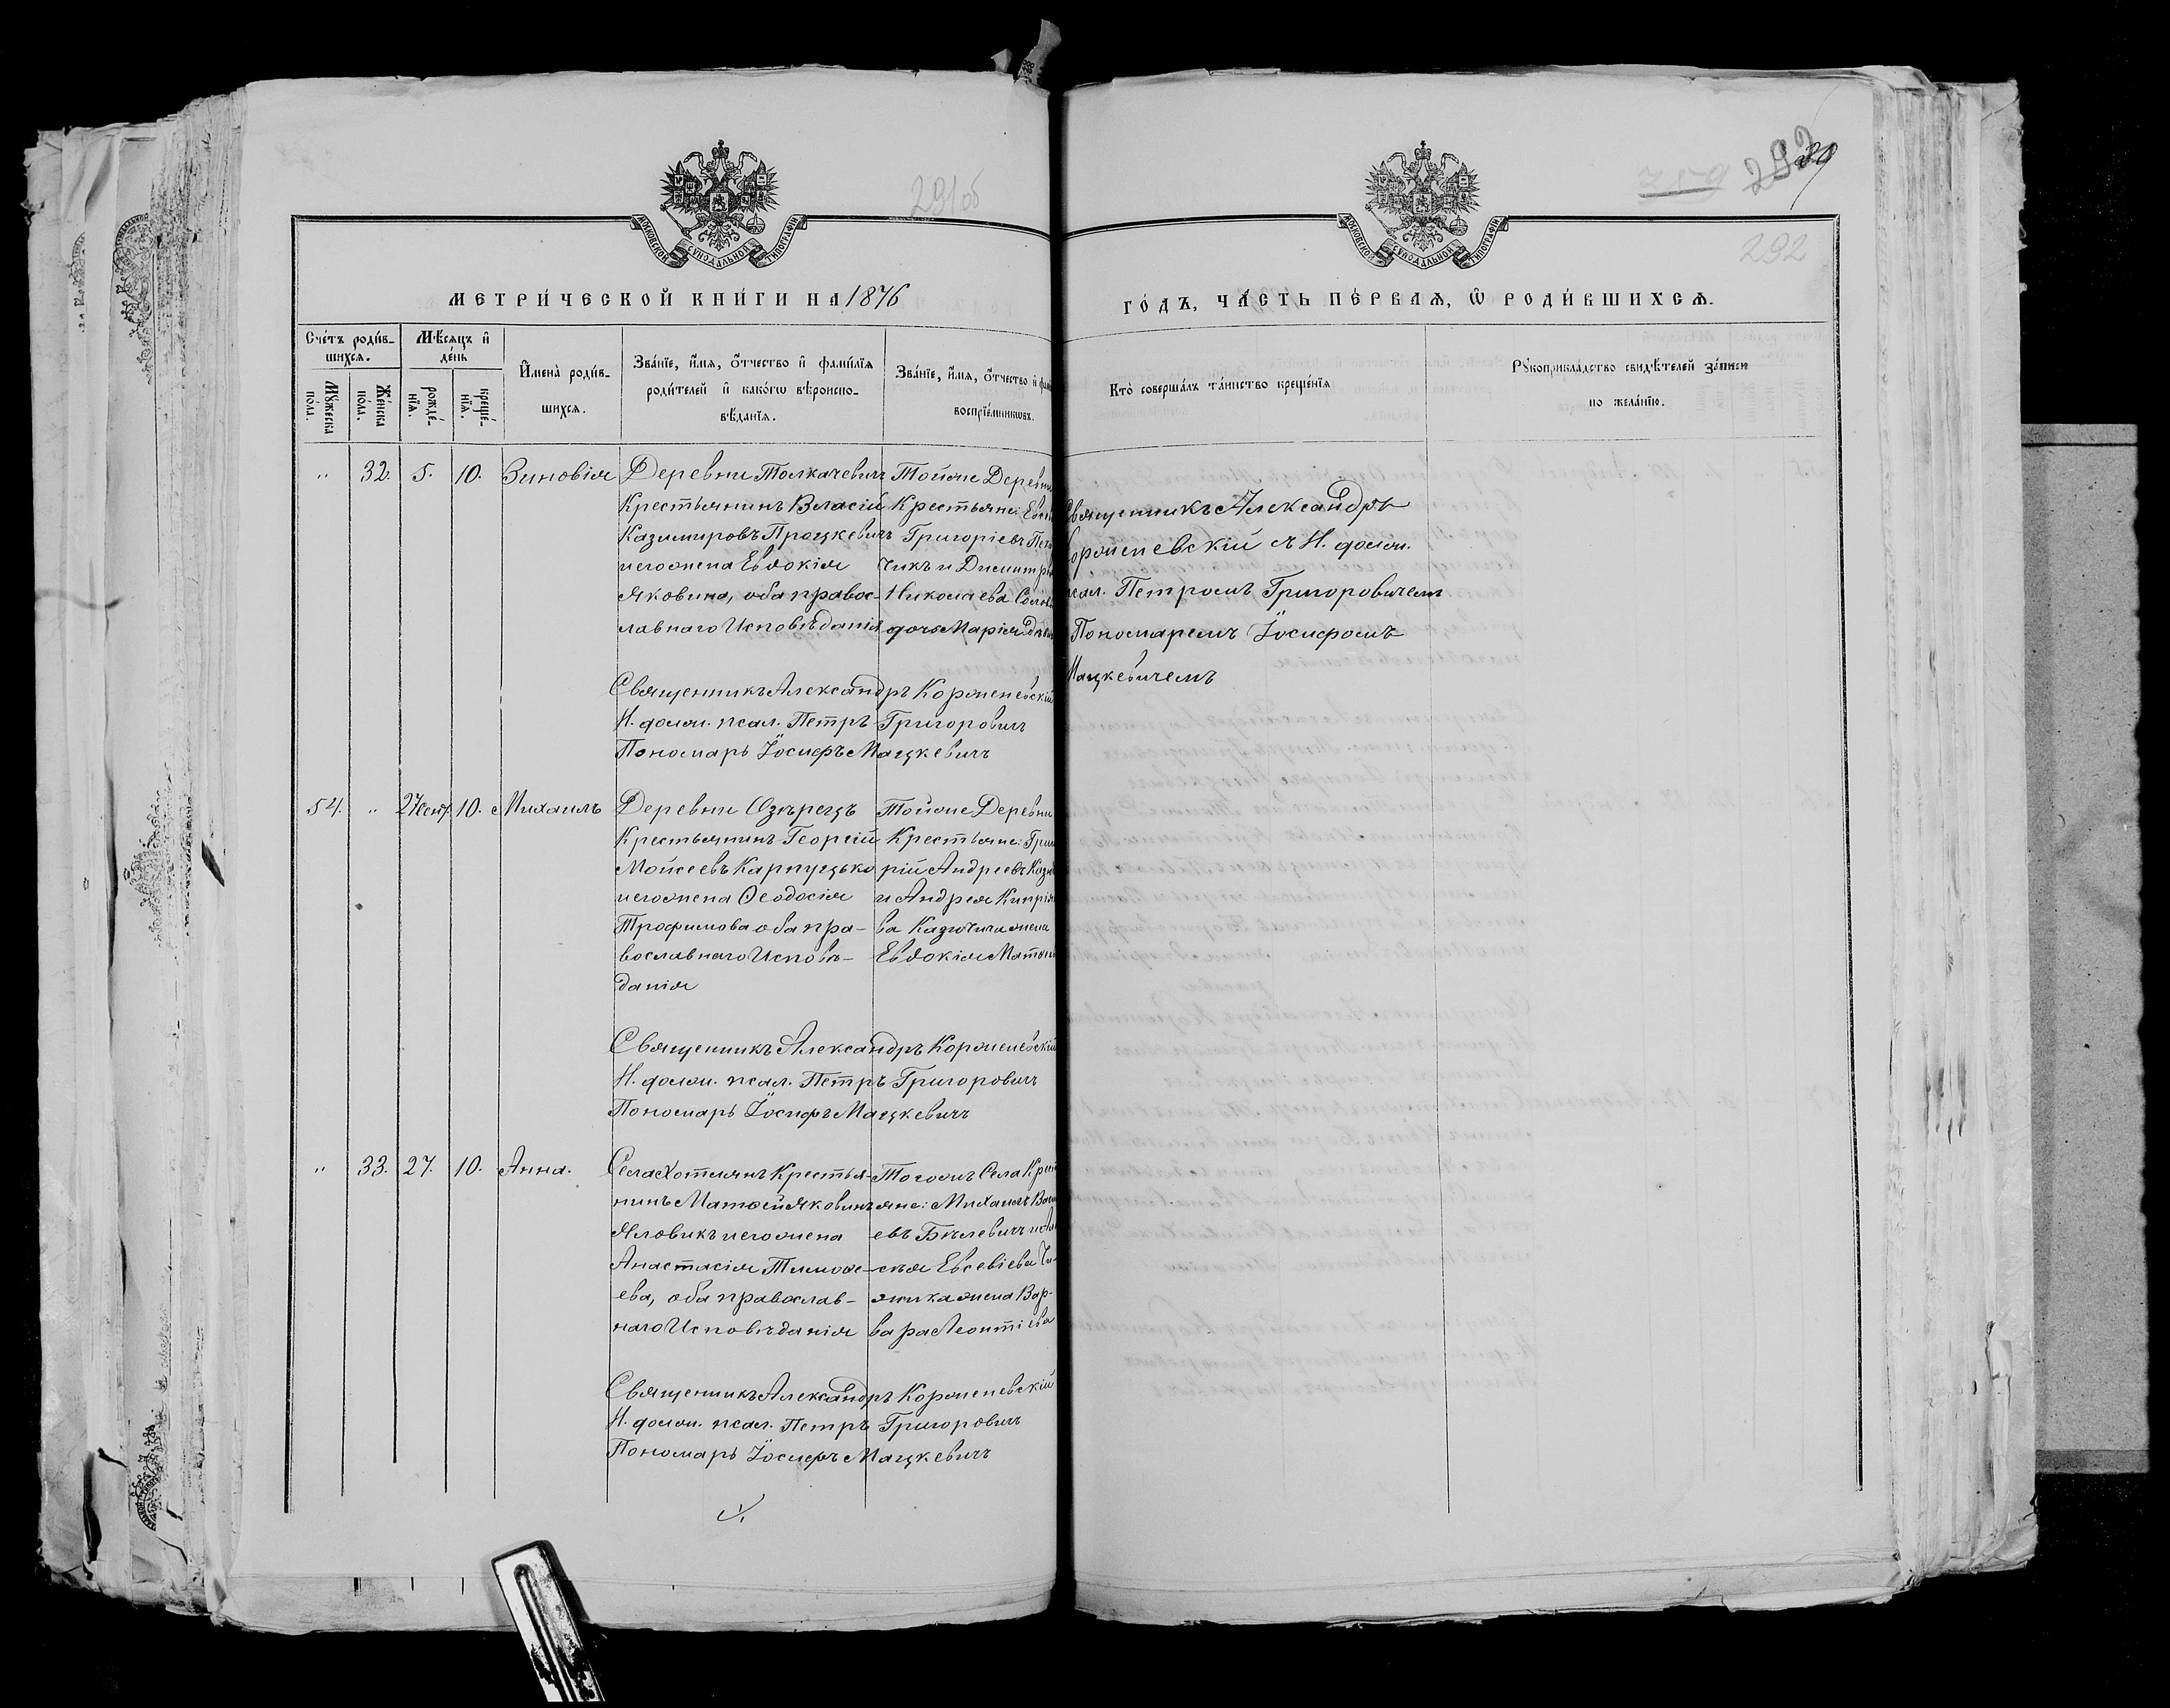 291об
292
292
МОСКОВСКОЙ СѴНОДАЛЬНОЙ ТИПОГРАФІИ
МОСКОВСКОЙ СѴНОДАЛЬНОЙ ТИПОГРАФІИ
МЕТРИ́ЧЕСКОЙ КНИ́ГИ НА 1876
ГО́ДЪ, ЧА́СТЬ ПЕ́РВАѦ, Ѡ҆ РОДИ́ВШИХСѦ.
Сче́тъ роди́в-
шихсѧ.
Мꙋ́жеска по́ла.
Же́нска по́ла.
Мѣ́сѧцъ и҆ де́нь
рожде́-
нїѧ.
креще́-
нїѧ.
И҆мена̀ роди́в-
шихсѧ.
Зва́нїе, и҆́мѧ, ѻ҆́тчество и҆ фами́лїѧ
роди́телей и҆ како́гѡ вѣроиспо-
вѣ́данїѧ.
Зва́нїе, и҆́мѧ, ѻ҆́тчество и҆
воспрїе́мникѡвъ.
Кто̀ соверша́лъ та́инство креще́нїѧ
Рꙋкоприкла́дство свидѣ́телей за́писи
по жела́нїю.
" 32. 5. 10. Зиновія
Деревни Толкачевичъ
Крестьянинъ Власій
Казимировъ Процкевичъ
и его жена Евдокія
Яковина, оба правос-
лавнаго Исповѣданія
Тойже Деревни
Крестьяне:
Григоріевъ
чикъ и Димитрія
Николаева
дочь Марія
Священникъ Александръ
съ Н. долж.
Петромъ Григоровичемъ
Пономаремъ Іосифомъ
Мацкевичемъ
Священникъ Александръ Корженевскій
И. долж. псал. Петръ Григоровичъ
Пономарь Іосифъ Мацкевичъ
54. " 27 10. Михаилъ
Деревни Озѣрецъ
Крестьянинъ Георгій
Мойсеевъ Карпуцько
и его жена Ѳеодосія
Трофимова оба пра-
вославнаго Исповѣ-
данія
Тойже Деревни
Крестьяне:
рій Андреевъ
и Андрея
ва Казючица жена
Евдокія
Священникъ Александръ Корженевскій
И. долж. псал. Петръ Григоровичъ
Пономарь Іосифъ Мацкевичъ
" 33. 27. 10. Анна.
Села Хотлянъ Крестья-
нинъ Матѳей Яковинъ
Яловикъ и его жена
Анастасія Тимоѳе-
ева, оба православ-
наго Исповѣданія
Тогожъ Села
яне: Михаилъ
евъ Бѣлевичъ
Евсевіева
жика жена Вар-
вара Леонтіева
Священникъ Александръ Корженевскій
И. долж. псал. Петръ Григоровичъ
Пономарь Іосифъ Мацкевичъ